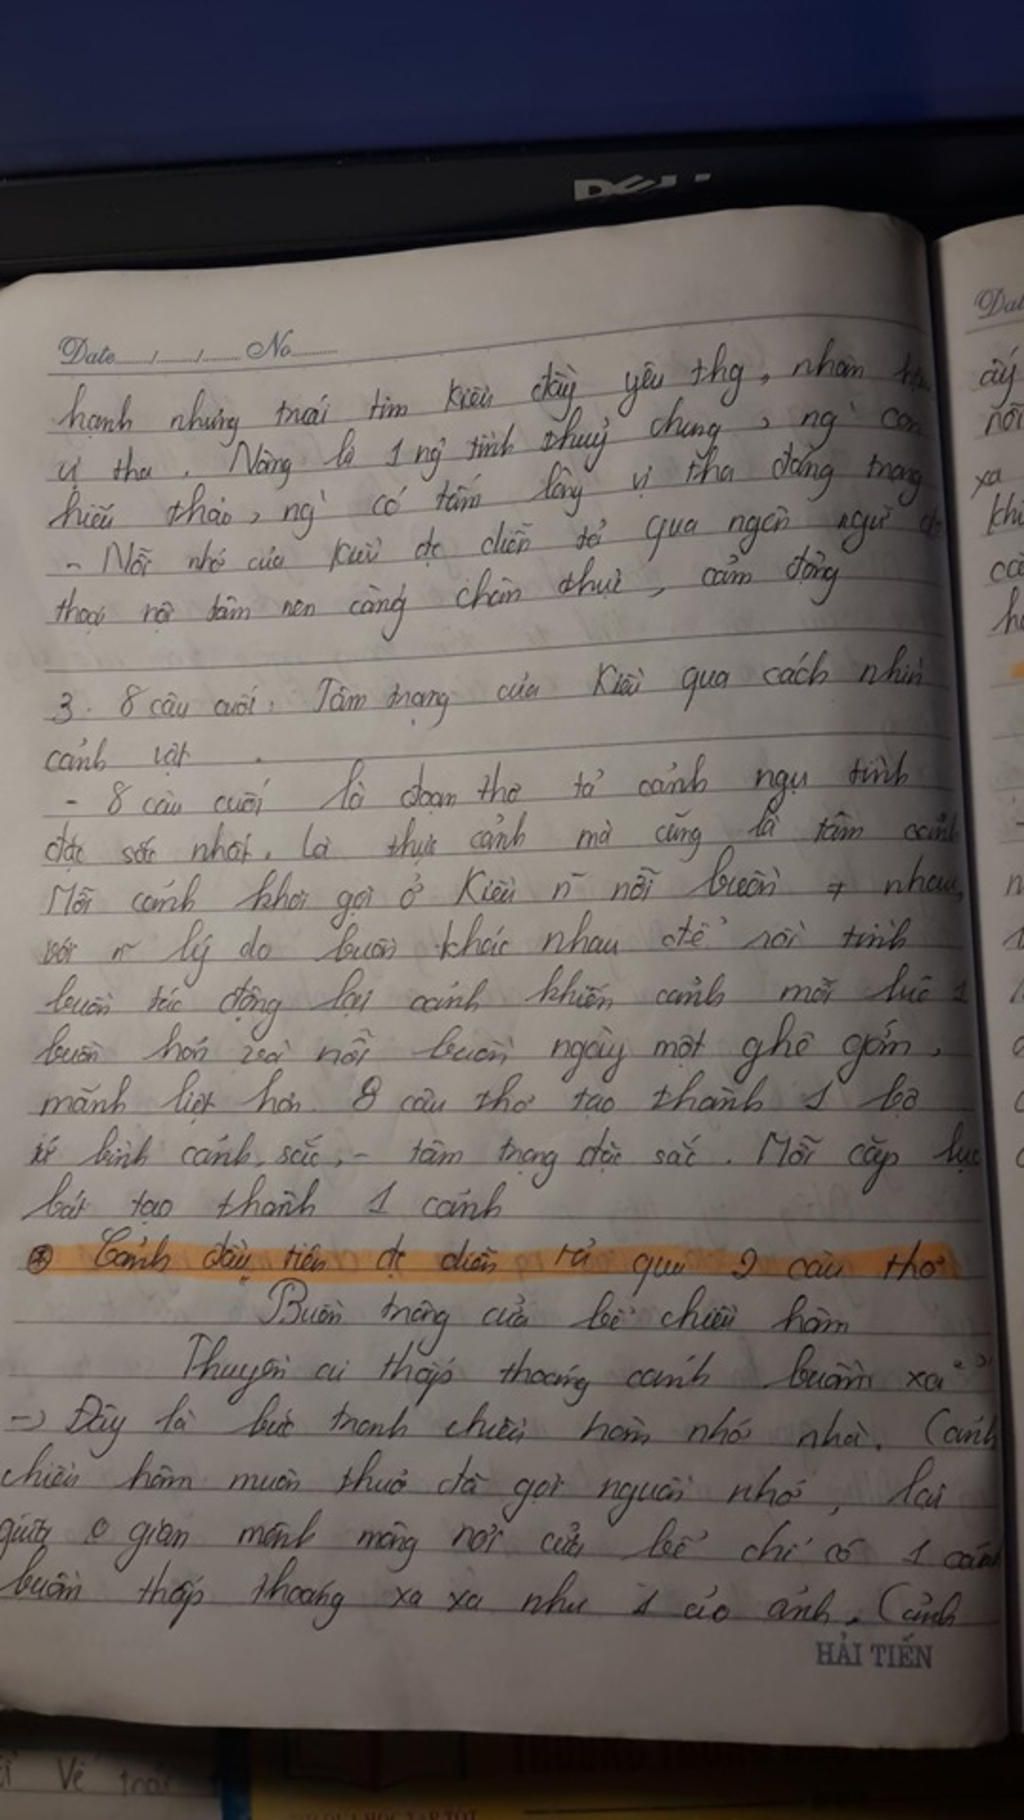 DELL
Date...../...../...... No..........
hạnh nhưng trái tim Kiều đầy yêu thg, nhân
vị tha. Nàng là 1 ng tình thuỷ chung, ng con
hiếu thảo, ng có tấm lòng vị tha đáng trọng
- Nỗi nhớ của Kiều đc diễn tả qua ngôn ngữ
thoại nội tâm nên càng chân thực, cảm động
3. 8 câu cuối: Tâm trạng của Kiều qua cách nhìn
cảnh vật.
- 8 câu cuối là đoạn thơ tả cảnh ngụ tình
đặc sắc nhất. Là thực cảnh mà cũng là tâm cảnh
Mỗi cảnh khơi gợi ở Kiều n~ nỗi buồn ≠ nhau,
với n~ lý do buồn khác nhau để rồi tình
buồn tác động lại cảnh khiến cảnh mỗi lúc 1
buồn hơn và nỗi buồn ngày một ghê gớm,
mãnh liệt hơn. 8 câu thơ tạo thành 1 bộ
tứ bình cảnh sắc, - tâm trạng đặc sắc. Mỗi cặp lục
bát tạo thành 1 cảnh
⊛ Cảnh đầu tiên đc diễn tả qua 2 câu thơ
"Buồn trông cửa bể chiều hôm
Thuyền ai thấp thoáng cánh buồm xa xa"
-> Đây là bức tranh chiều hôm nhớ nhà. Cảnh
chiều hôm muôn thuở đã gợi nguôi nhớ, lại
giữa 0 gian mênh mông nơi cửa bể chỉ có 1 cánh
buồm thấp thoáng xa xa như 1 ảo ảnh. Cảnh
HẢI TIẾN
Dat
ấy
nỗi
xa
khi